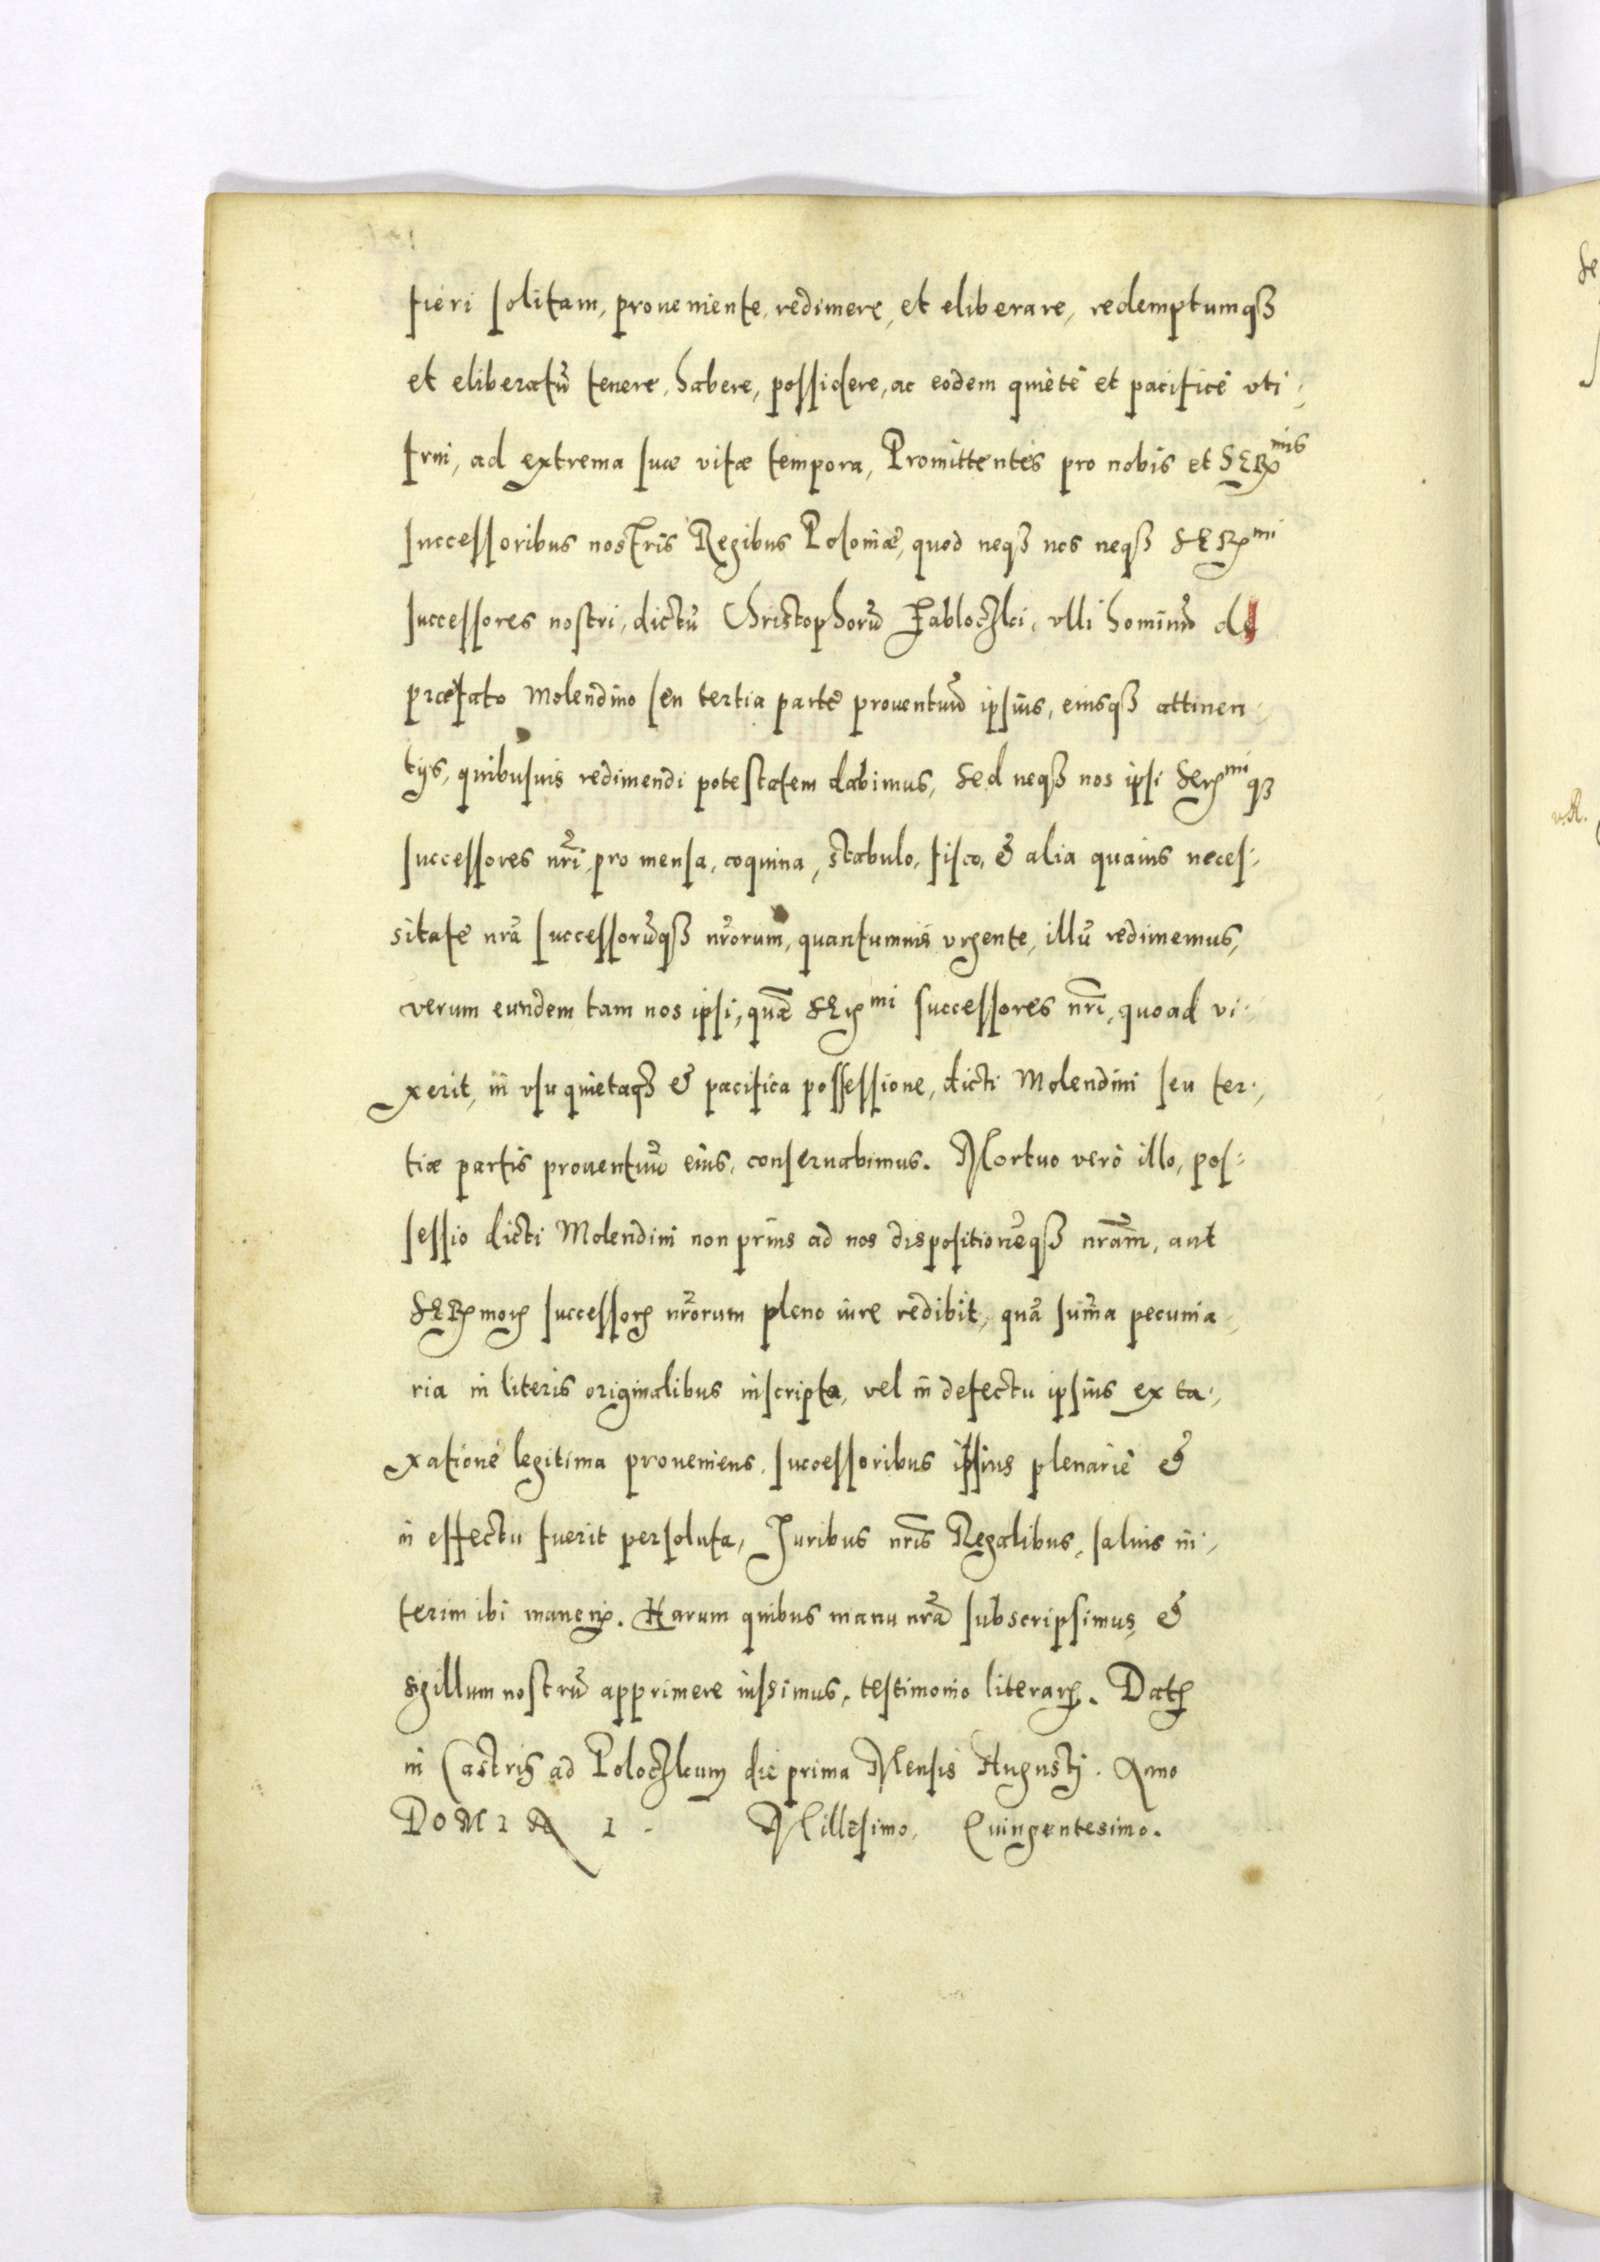 fieri solitam, proueniente, redimere, et eliberare, redemptumqꝫ
et eliberatũ tenere, habere, possidere, ac eodem quietè et pacificè vti,
frui, ad extrema suæ vitæ tempora, Promittentes pro nobis et SERꝫmis
successoribus nostris Regibus Poloniæ, quod neqꝫ nos neqꝫ SERꝫmi
successores nostri, dictũ Christophorũ Jabloczki, vlli hominũ de
præfato Molendino seu tertia parte prouentuũ ipsius, eiusqꝫ attinen,
tijs, quibusuis redimendi potestatem dabimus, Sed neqꝫ nos ipsi Serꝫmiqꝫ
successores nr̃i, pro mensa, coquina, stabulo, fisco, & alia quauis neces,
sitate nr̃a successorũqꝫ nr̃orum, quantumuis vrgente, illũ redimemus,
verum eundem tam nos ipsi, quã SERꝫmi successores nr̃i, quoad vi,
xerit, in vsu quietaqꝫ & pacifica possessione, dicti Molendini seu ter,
tiæ partis prouentuũ eius, conseruabimus. Mortuo verò illo, pos,
sessio dicti Molendini non prius ad nos dispositionẽqꝫ nr̃am, aut
SERꝫmorꝫ successorꝫ nr̃orum pleno iure redibit, quã sum̃a pecunia,
ria in literis originalibus inscripta, vel in defectu ipsius ex ta,
xatione legitima proueniens, successoribus ipsius plenariè &
in effectu fuerit persoluta, Juribus nr̃is Regalibus, saluis in,
terim ibi manenꝫ. Harum quibus manu nr̃a subscripsimus, &
sigillum nostrũ apprimere iussimus, testimonio literarꝫ. Datꝫ
in Castris ad Poloczkum die prima Mensis Augusti. Anno
DOMINI. Millesimo, Quingentesimo.